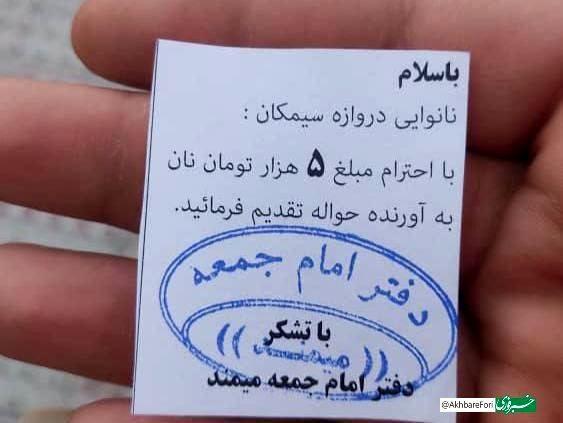 باسلام
نانوایی دروازه سیمکان :
با احترام مبلغ ۵ هزار تومان نان
به آورنده حواله تقدیم فرمائید.
دفتر امام جمعه
با تشکر
((میمند))
دفتر امام جمعه میمند
@AkhbareFori
خبرفوری